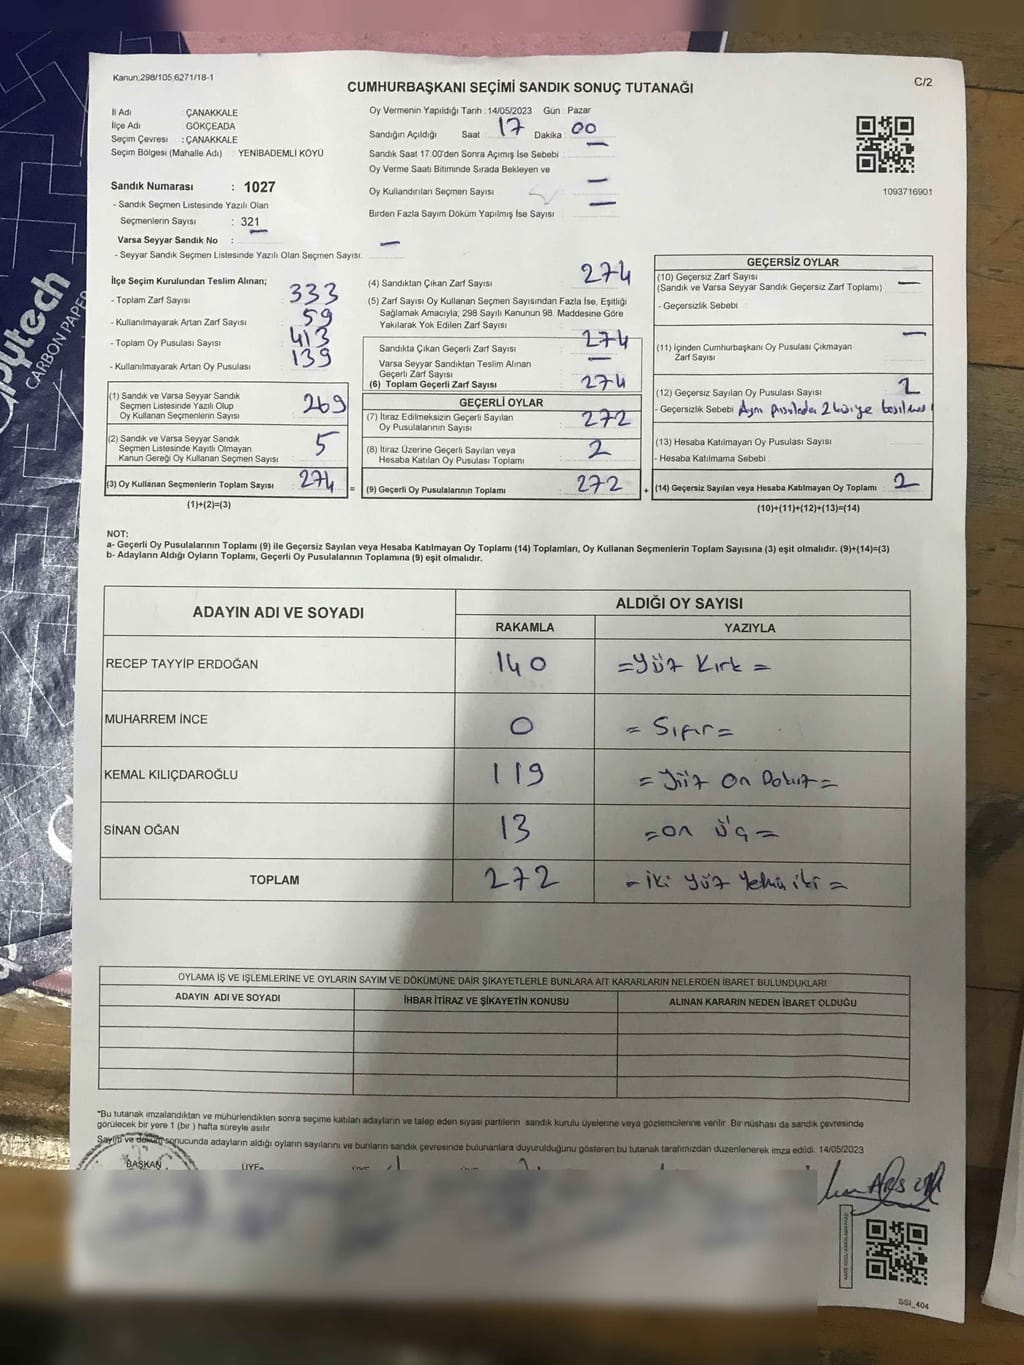 Kanun,298/105,6271/18-1
C/2
CUMHURBAŞKANI SEÇİMİ SANDIK SONUÇ TUTANAĞI
İl Adı ÇANAKKALE
İlçe Adı GÖKÇEADA
Seçim Çevresi : ÇANAKKALE
Seçim Bölgesi (Mahalle Adı) YENİBADEMLİ KÖYÜ
Sandık Numarası : 1027
- Sandık Seçmen Listesinde Yazılı Olan
Seçmenlerin Sayısı : 321
Varsa Seyyar Sandık No : —
- Seyyar Sandık Seçmen Listesinde Yazılı Olan Seçmen Sayısı.
Oy Vermenin Yapıldığı Tarih :14/05/2023 Gün : Pazar
Sandığın Açıldığı Saat 17 Dakika 00
Sandık Saat 17:00'den Sonra Açımış İse Sebebi : —
Oy Verme Saati Bitiminde Sırada Bekleyen ve
Oy Kullandırılan Seçmen Sayısı —
Birden Fazla Sayım Döküm Yapılmış İse Sayısı —
1093716901
İlçe Seçim Kurulundan Teslim Alınan;
- Toplam Zarf Sayısı 333
- Kullanılmayarak Artan Zarf Sayısı 59
- Toplam Oy Pusulası Sayısı 413
- Kullanılmayarak Artan Oy Pusulası 139
(1) Sandık ve Varsa Seyyar Sandık
Seçmen Listesinde Yazılı Olup
Oy Kullanan Seçmenlerin Sayısı 269
(2) Sandık ve Varsa Seyyar Sandık
Seçmen Listesinde Kayıtlı Olmayan
Kanun Gereği Oy Kullanan Seçmen Sayısı 5
(3) Oy Kullanan Seçmenlerin Toplam Sayısı 274 =
(1)+(2)=(3)
(4) Sandıktan Çıkan Zarf Sayısı 274
(5) Zarf Sayısı Oy Kullanan Seçmen Sayısından Fazla İse, Eşitliği
Sağlamak Amacıyla, 298 Sayılı Kanunun 98. Maddesine Göre
Yakılarak Yok Edilen Zarf Sayısı
Sandıkta Çıkan Geçerli Zarf Sayısı 274
Varsa Seyyar Sandıktan Teslim Alınan
Geçerli Zarf Sayısı —
(6) Toplam Geçerli Zarf Sayısı 274
GEÇERLİ OYLAR
(7) İtiraz Edilmeksizin Geçerli Sayılan
Oy Pusulalarının Sayısı 272
(8) İtiraz Üzerine Geçerli Sayılan veya
Hesaba Katılan Oy Pusulası Toplamı 2
(9) Geçerli Oy Pusulalarının Toplamı 272 +
GEÇERSİZ OYLAR
(10) Geçersiz Zarf Sayısı
(Sandık ve Varsa Seyyar Sandık Geçersiz Zarf Toplamı) —
- Geçersizlik Sebebi : —
(11) İçinden Cumhurbaşkanı Oy Pusulası Çıkmayan
Zarf Sayısı
(12) Geçersiz Sayılan Oy Pusulası Sayısı 2
- Geçersizlik Sebebi Aynı pusulada 2 kişiye
(13) Hesaba Katılmayan Oy Pusulası Sayısı
- Hesaba Katılmama Sebebi
(14) Geçersiz Sayılan veya Hesaba Katılmayan Oy Toplamı 2
(10)+(11)+(12)+(13)=(14)
NOT:
a- Geçerli Oy Pusulalarının Toplamı (9) ile Geçersiz Sayılan veya Hesaba Katılmayan Oy Toplamı (14) Toplamları, Oy Kullanan Seçmenlerin Toplam Sayısına (3) eşit olmalıdır. (9)+(14)=(3)
b- Adayların Aldığı Oyların Toplamı, Geçerli Oy Pusulalarının Toplamına (9) eşit olmalıdır.
ADAYIN ADI VE SOYADI ALDIĞI OY SAYISI
RAKAMLA YAZIYLA
RECEP TAYYİP ERDOĞAN 140 =Yüz Kırk =
MUHARREM İNCE 0 = Sıfır =
KEMAL KILIÇDAROĞLU 119 = Yüz On Dokuz =
SİNAN OĞAN 13 = on üç =
TOPLAM 272 = iki yüz Yetmiş iki =
OYLAMA İŞ VE İŞLEMLERİNE VE OYLARIN SAYIM VE DÖKÜMÜNE DAİR ŞİKAYETLERLE BUNLARA AİT KARARLARIN NELERDEN İBARET BULUNDUKLARI
ADAYIN ADI VE SOYADI İHBAR İTİRAZ VE ŞİKAYETİN KONUSU ALINAN KARARIN NEDEN İBARET OLDUĞU
*Bu tutanak imzalandıktan ve mühürlendikten sonra seçime katılan adayların ve talep eden siyasi partilerin sandık kurulu üyelerine veya gözlemcilerine verilir. Bir nüshası da sandık çevresinde
görülecek bir yere 1 (bir ) hafta süreyle asılır
Sayım ve döküm sonucunda adayların aldığı oyların sayılarını ve bunların sandık çevresinde bulunanlara duyurulduğunu gösteren bu tutanak tarafımızdan düzenlenerek imza edildi. 14/05/2023
BAŞKAN ÜYE
SSI_404
CARBON PAPER